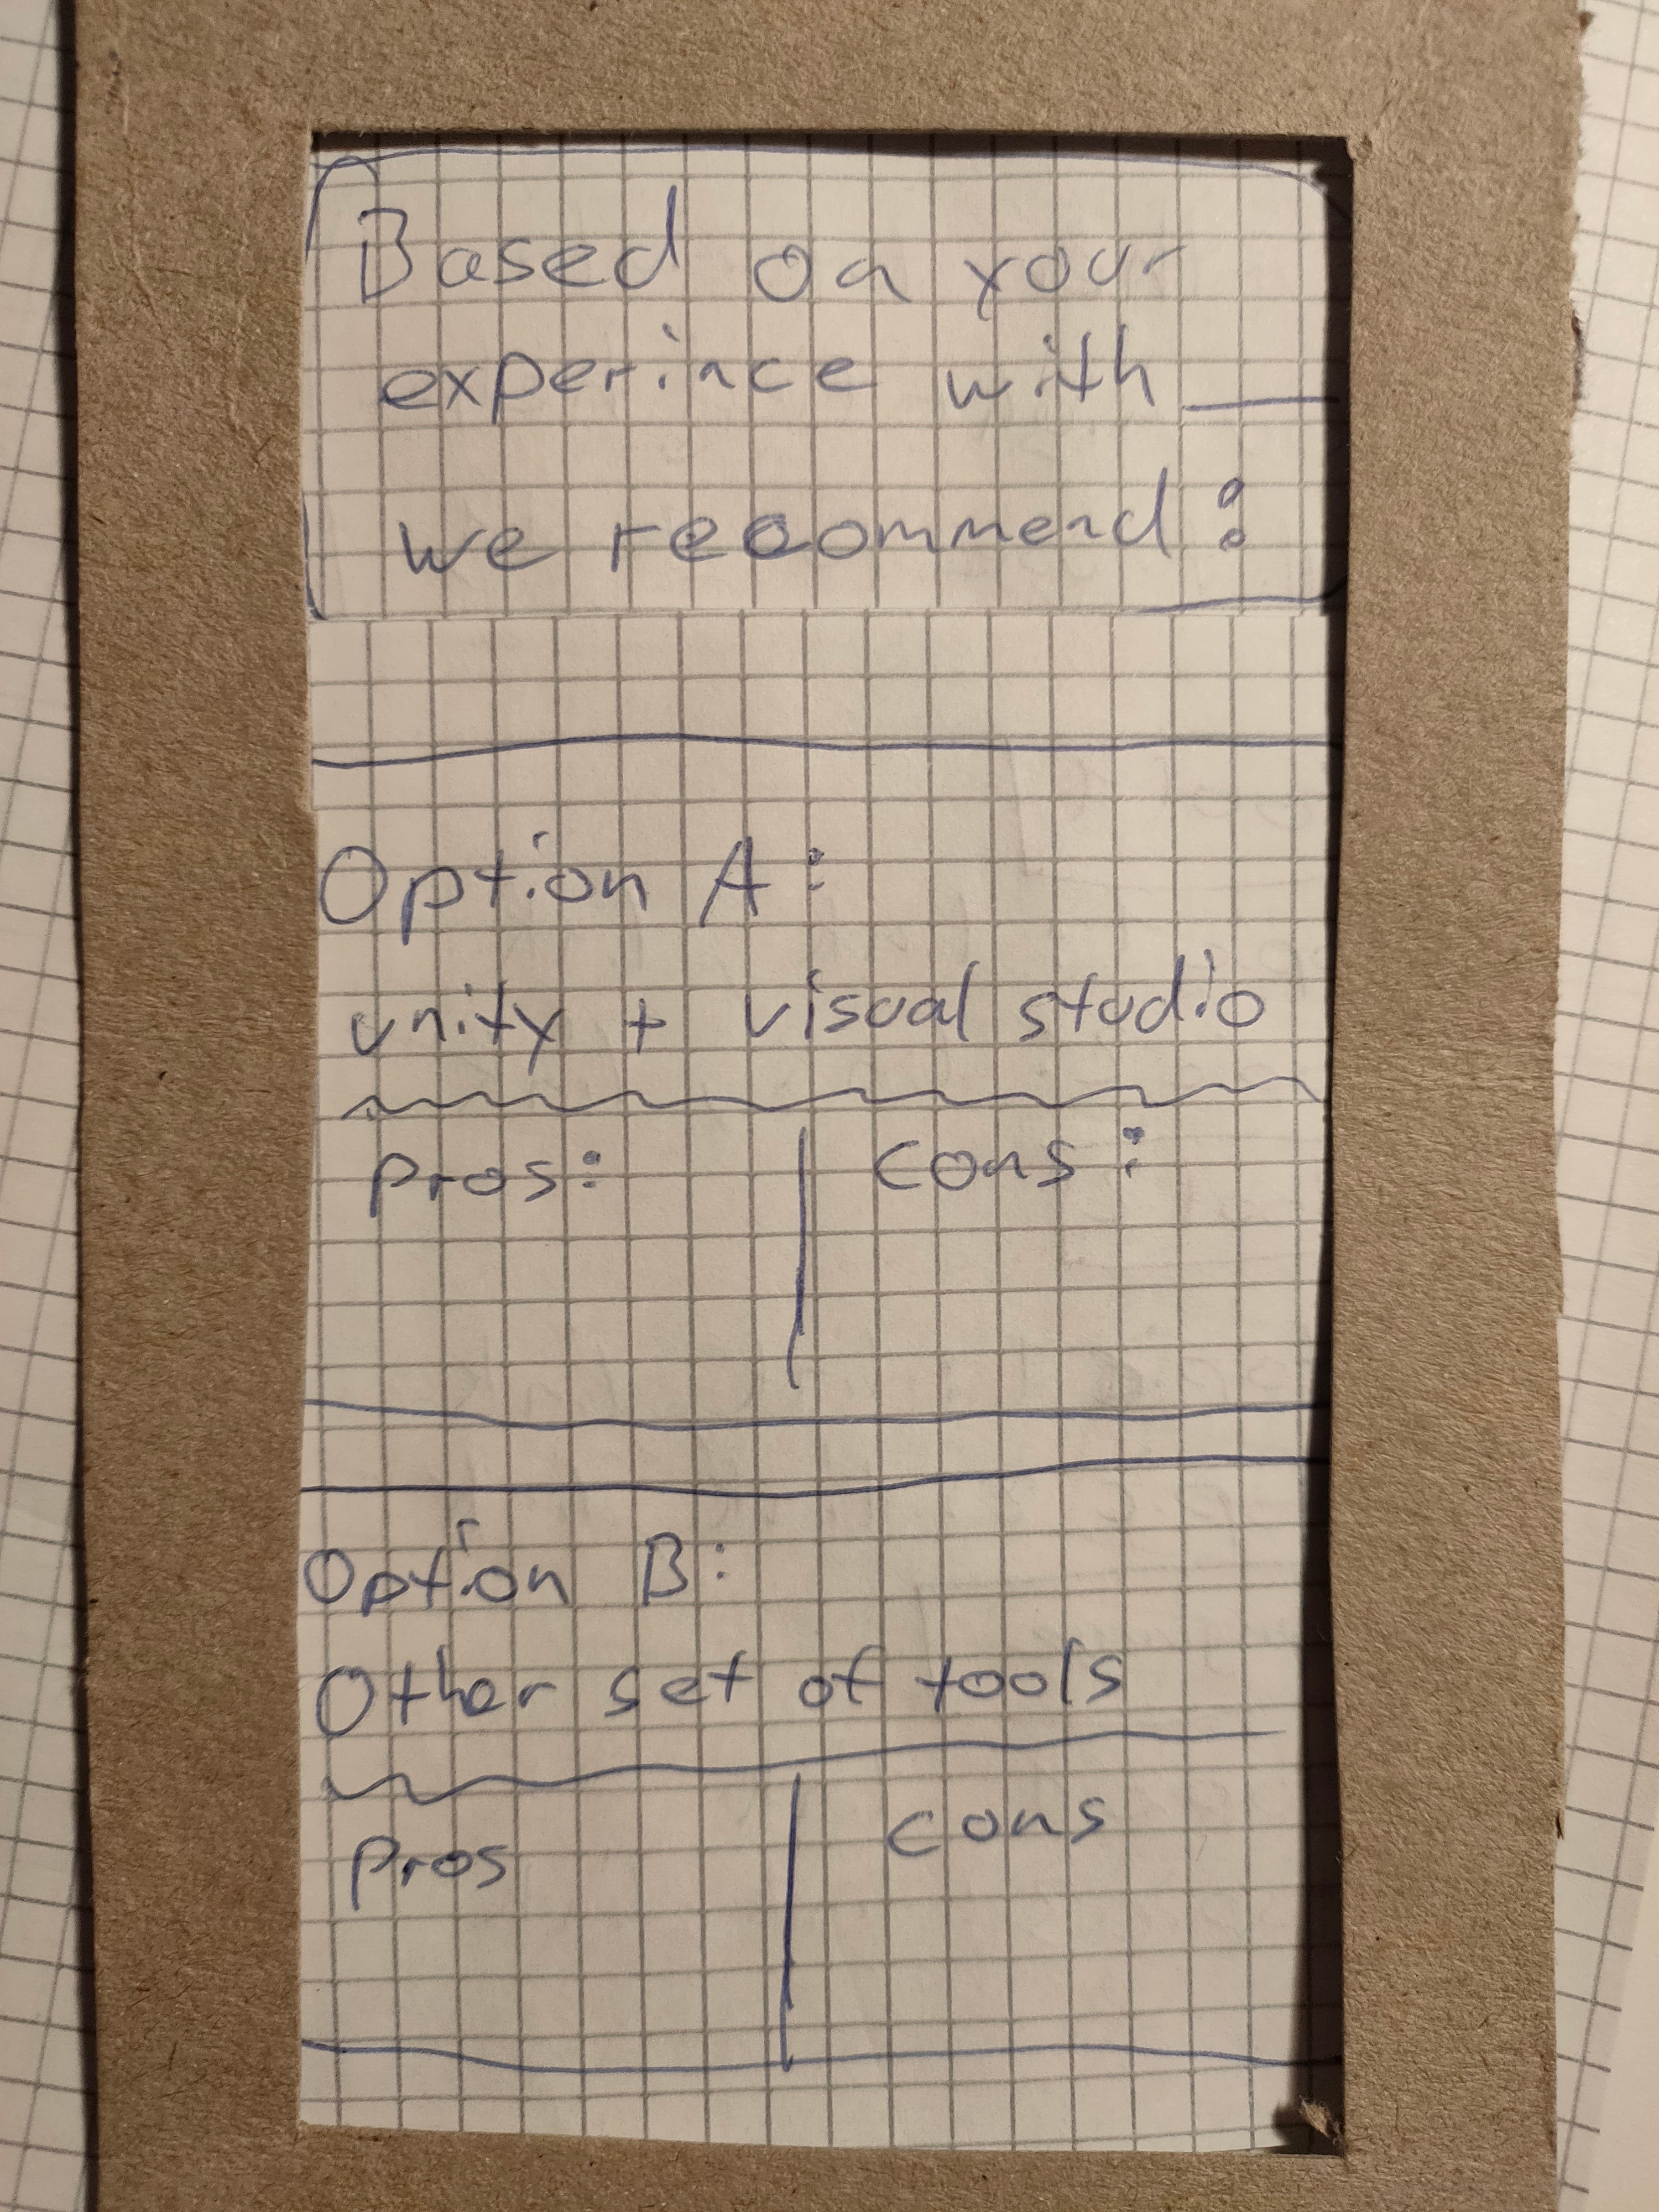 Based on your
experince with ___
we recommend:
Option A:
unity + visual studio
Pros: cons:
Option B:
Other set of tools
Pros cons